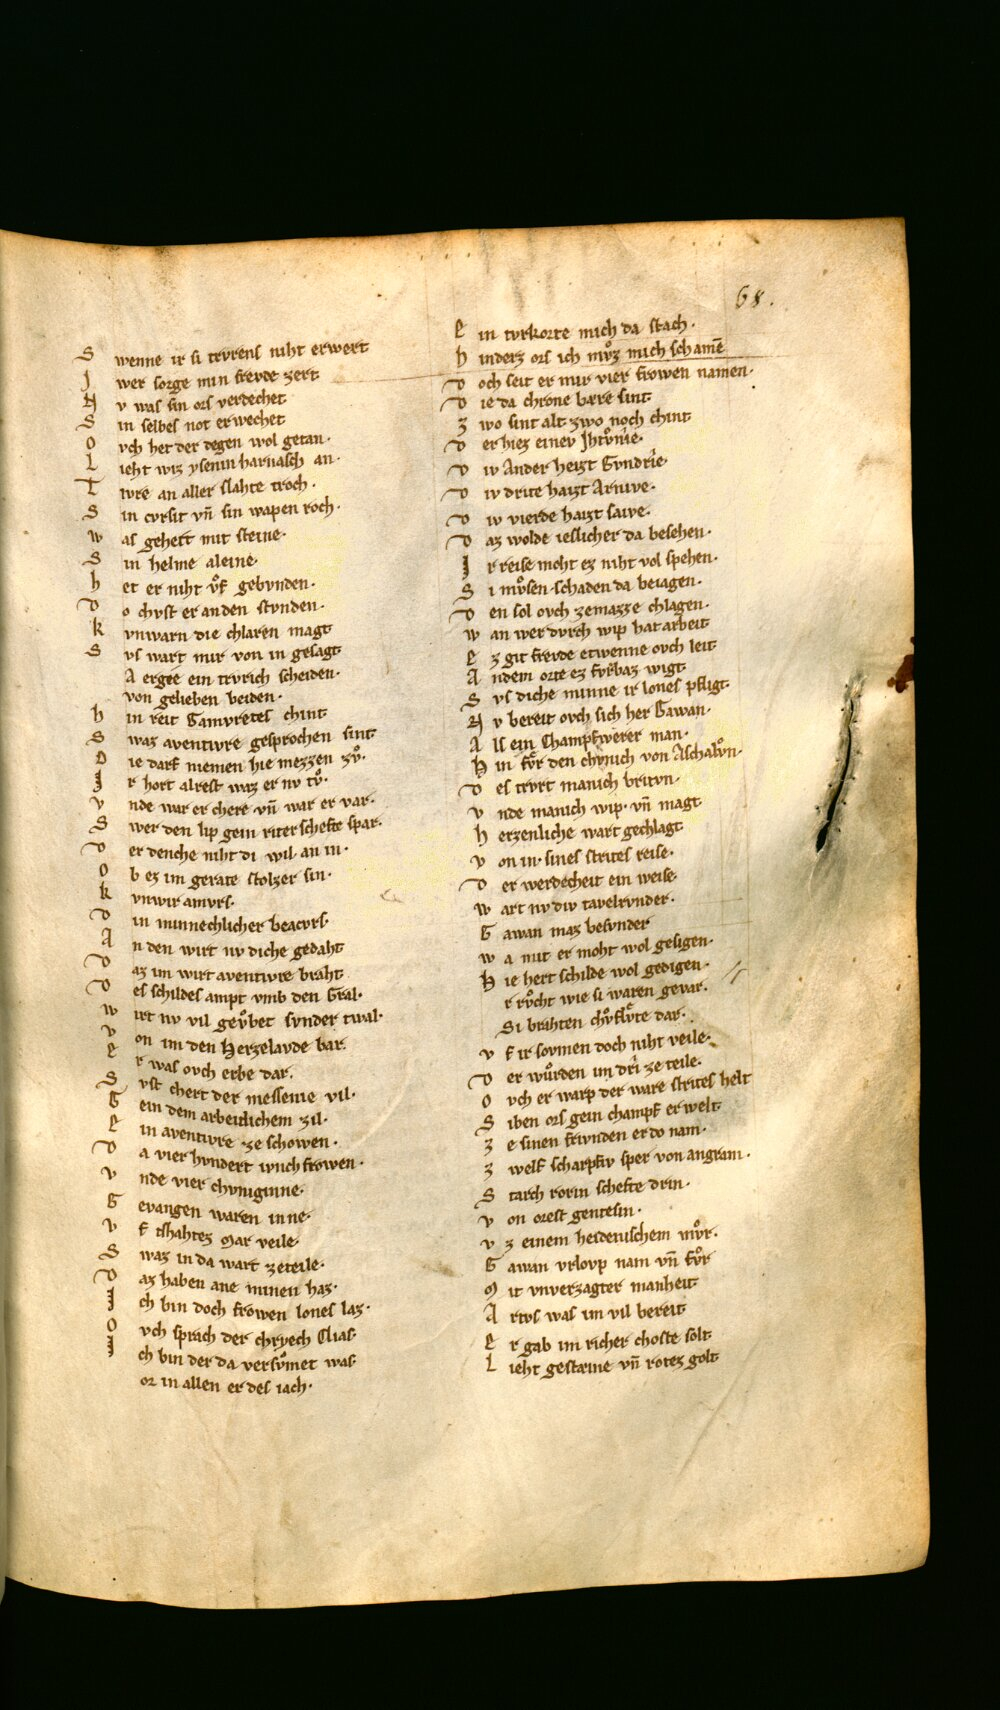 68.
S wenne ir si trvrens niht erwert
J wer sorge min frevde zert
N v was sin ors verdechet
S in selbes not erwechet
O vch het der degen wol getan·
L ieht wiz ysenin harnasch an·
T ivre an aller slahte troch·
S in cvrsit vn̄ sin wapen roch·
w as gehert mit steine·
S in helme aleine·
h et er niht vͦf gebvnden·
D o chvst er an den stvnden·
k vnwarn die chlaren magt
S vs wart mir von in gesagt
A ergee ein trvrich scheiden·
von gelieben beiden·
h in reit Gamvretes chint
S waz aventivre gesprochen sint
D ie darf niemen hie mezzen zvͦ·
J r hort alrest waz er nv tvͦ·
v nde war er chere vn̄ war er var·
S wer den lip gein riterschefte spar·
D er denche niht di wil an in·
O b ez im gerate stolzer sin·
k vnwir amvrs·
D in minnechlicher beacvrs·
A n den wirt nv diche gedaht
D az im wirt aventivre braht
D es schildes ampt vmb den Gral·
w irt nv vil gevͤbet svnder twal·
v on im den Herzelavde bar·
e r was ovch erbe dar·
S vst chert der messenie vil·
G ein dem arbeitlichem zil·
E in aventivre ze schowen·
D a vier hvndert ivnchfrowen·
v nde vier chvniginne·
G evangen waren inne·
v f tshahtez mar veile·
S waz in da wart ze teile·
D az haben ane minen haz·
J ch bin doch frowen lones laz·
O vch sprach der chryech Clias·
J ch bin der da versvͦmet was·
or in allen er des iach·
E in tvrkorte mich da stach·
h inderz ors ich mvͦz mich schamē
D och seit er mir vier frowen namen·
D ie da chrone bære sint
Z wo sint alt zwo noch chint
D er hiez einev Jhtvͦnie·
D iv Ander heizt Gvndrie·
D iv drite haizt Arnive·
D iv vierde haizt saive·
D az wolde ieslicher da besehen·
J r reise moht ez niht vol spehen·
S i mvͦsen schaden da beiagen·
D en sol ovch ze mazze chlagen·
w an wer dvrch wip hat arbeit
E z git frevde etwenne ovch leit
A ndem orte ez fvrbaz wigt
S vs diche minne ir lones pfligt
N v bereit ovch sich her Gawan·
A ls ein Champfwerer man·
H in fvͤr den chvnich von Aschalvͦn·
D es trvrt manich britvn·
v nde manich wip· vn̄ magt
h erzenliche wart gechlagt
v on in· sines strites reise·
D er werdecheit ein weise·
w art nv div tavelrvnder·
G awan maz besvnder
w a mit er moht wol gesigen·
H ie hert schilde wol gedigen·
r rvͦcht wie si waren gevar·
Si brahten chvͦflvͤte dar·
v f ir sovmen doch niht veile·
D er wvͦrden im dri ze teile·
O vch er warp der ware strites helt
S iben ors gein champf erwelt·
Z e sinen frivnden er do nam·
Z welf scharpfiv sper von angram·
S tarch rorin schefte drin·
v on orest gentesin·
v z einem heidenischem mvͦr·
G awan vrlovp nam vn̄ fvͦr
M it vnverzagter manheit
A rtvs was im vil bereit
E r gab im richer choste solt
L ieht gestæine vn̄ rotez golt